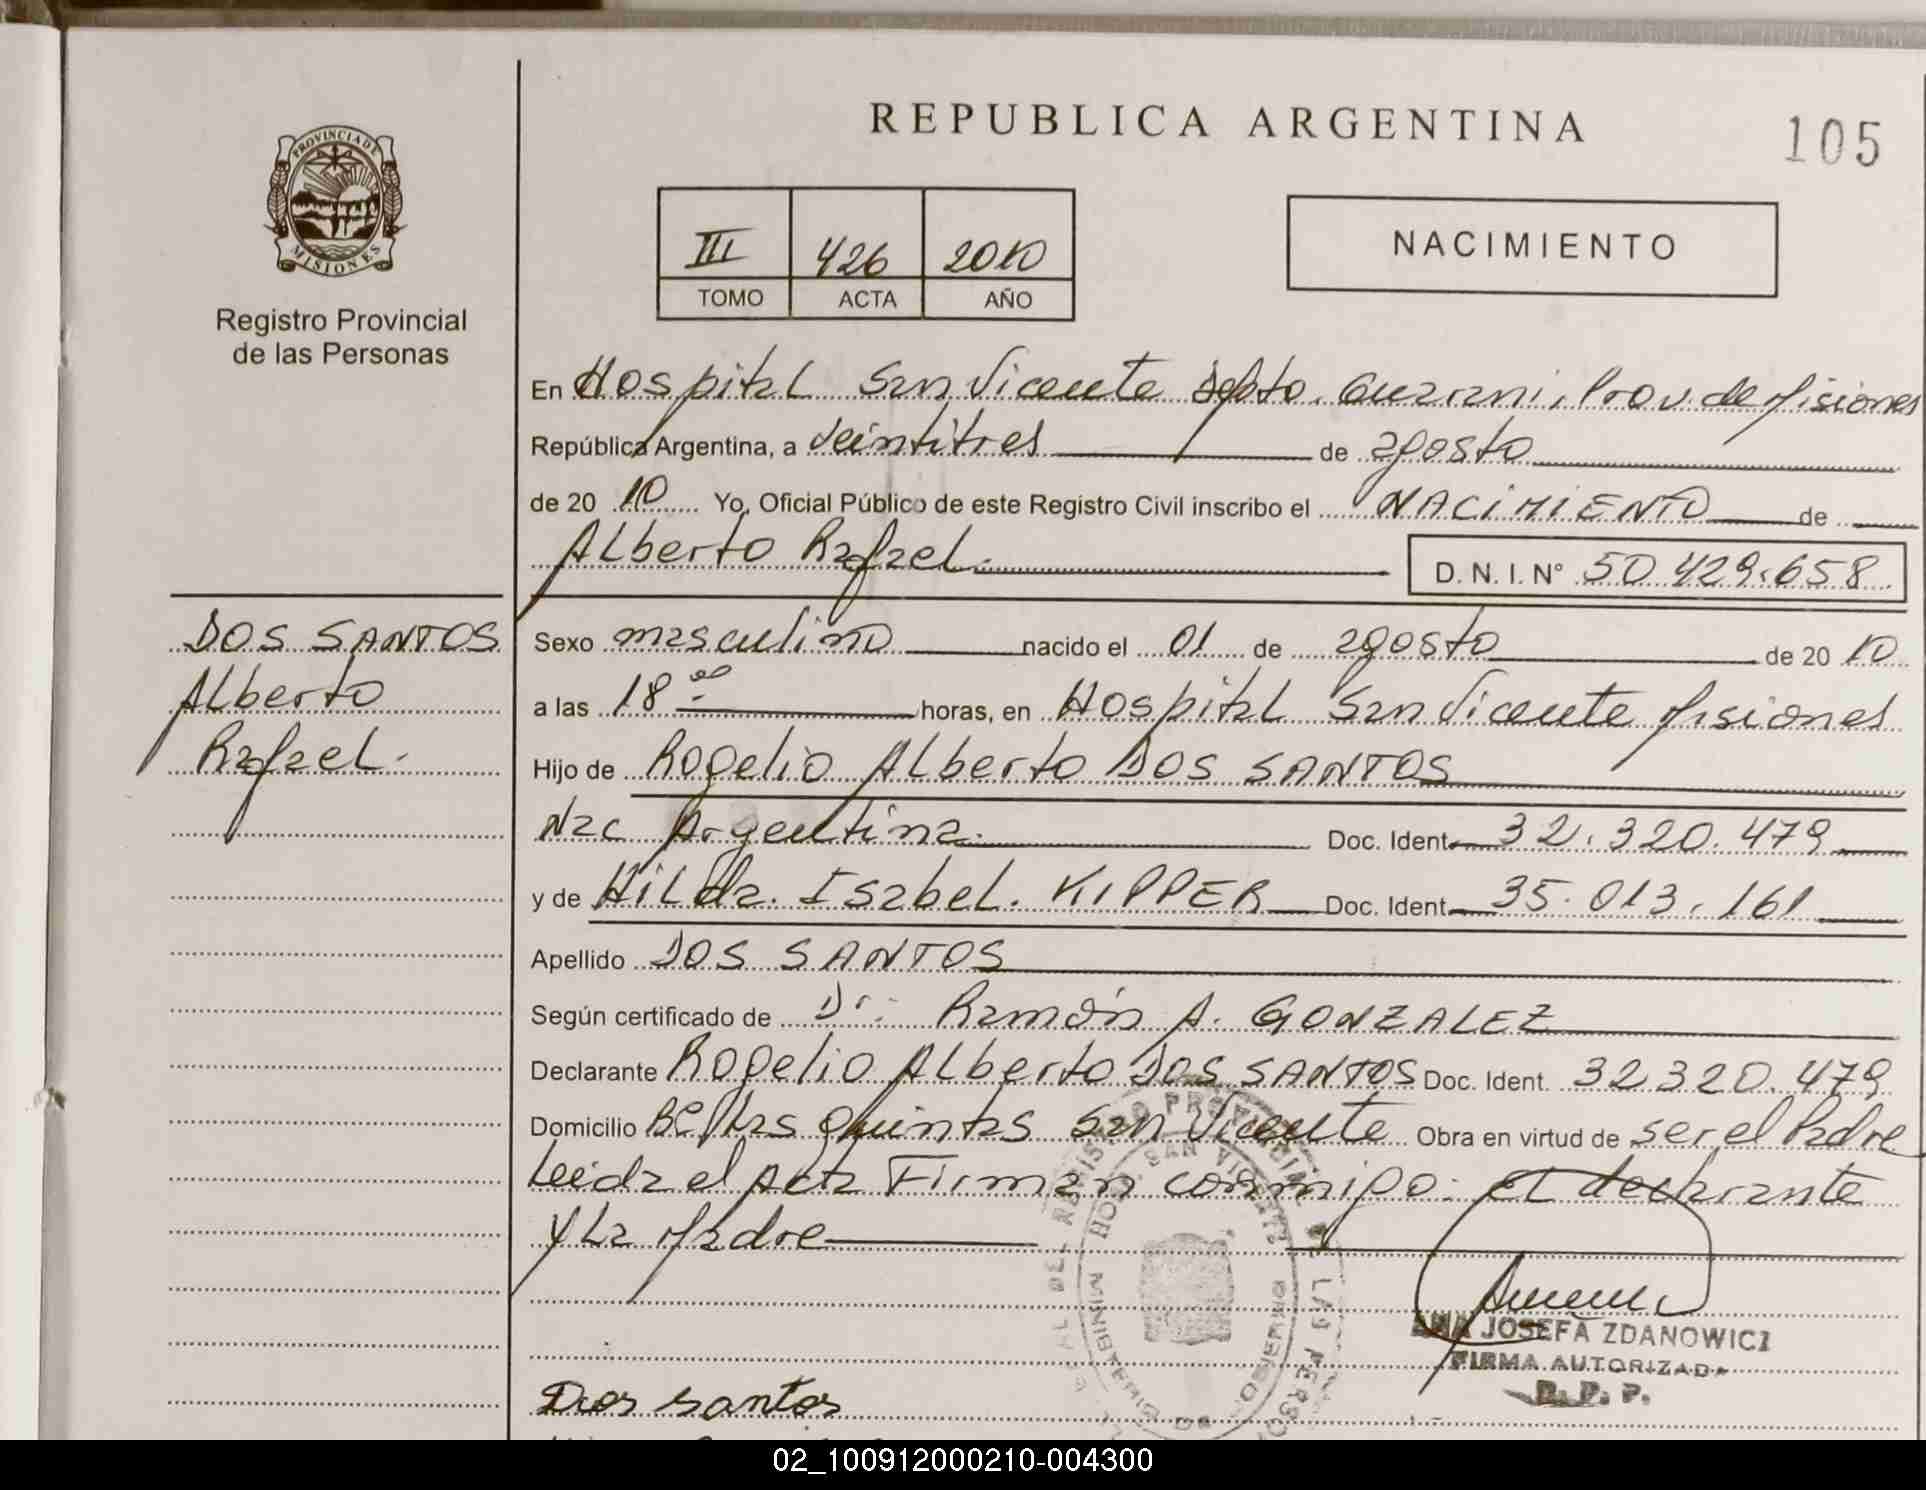 REPUBLICA ARGENTINA
105
PROVINCIA DE
MISIONES
Registro Provincial
de las Personas
III 426 2010
TOMO ACTA AÑO
NACIMIENTO
En Hospital San Vicente Depto. Guarani, Prov. de Misiones
República Argentina, a veintitres de agosto
de 20 10 Yo, Oficial Público de este Registro Civil inscribo el NACIMIENTO de
Alberto Rafael.
D. N. I. N° 50.429.658
DOS SANTOS
Alberto
Rafael.
Sexo masculino nacido el 01 de agosto de 20 10
a las 18 00 horas, en Hospital San Vicente Misiones
Hijo de Rogelio Alberto DOS SANTOS
Nac Argentina. Doc. Ident. 32.320.479
y de Hilda. Isabel. KIPPER Doc. Ident. 35.013.161
Apellido DOS SANTOS
Según certificado de Dr: Ramón A. GONZALEZ
Declarante Rogelio Alberto DOS SANTOS Doc. Ident. 32320.479
Domicilio Bº las Quintas San Vicente Obra en virtud de ser el Padre
Leida el Acta Firman conmigo: el declarante
y La Madre
REGISTRO PROVINCIAL DE LAS PERSO
HOSP. SAN VICENTE
GOBIERNO
ANA JOSEFA ZDANOWICZ
FIRMA AUTORIZADA
R. P. P.
Dos santos
02_100912000210-004300